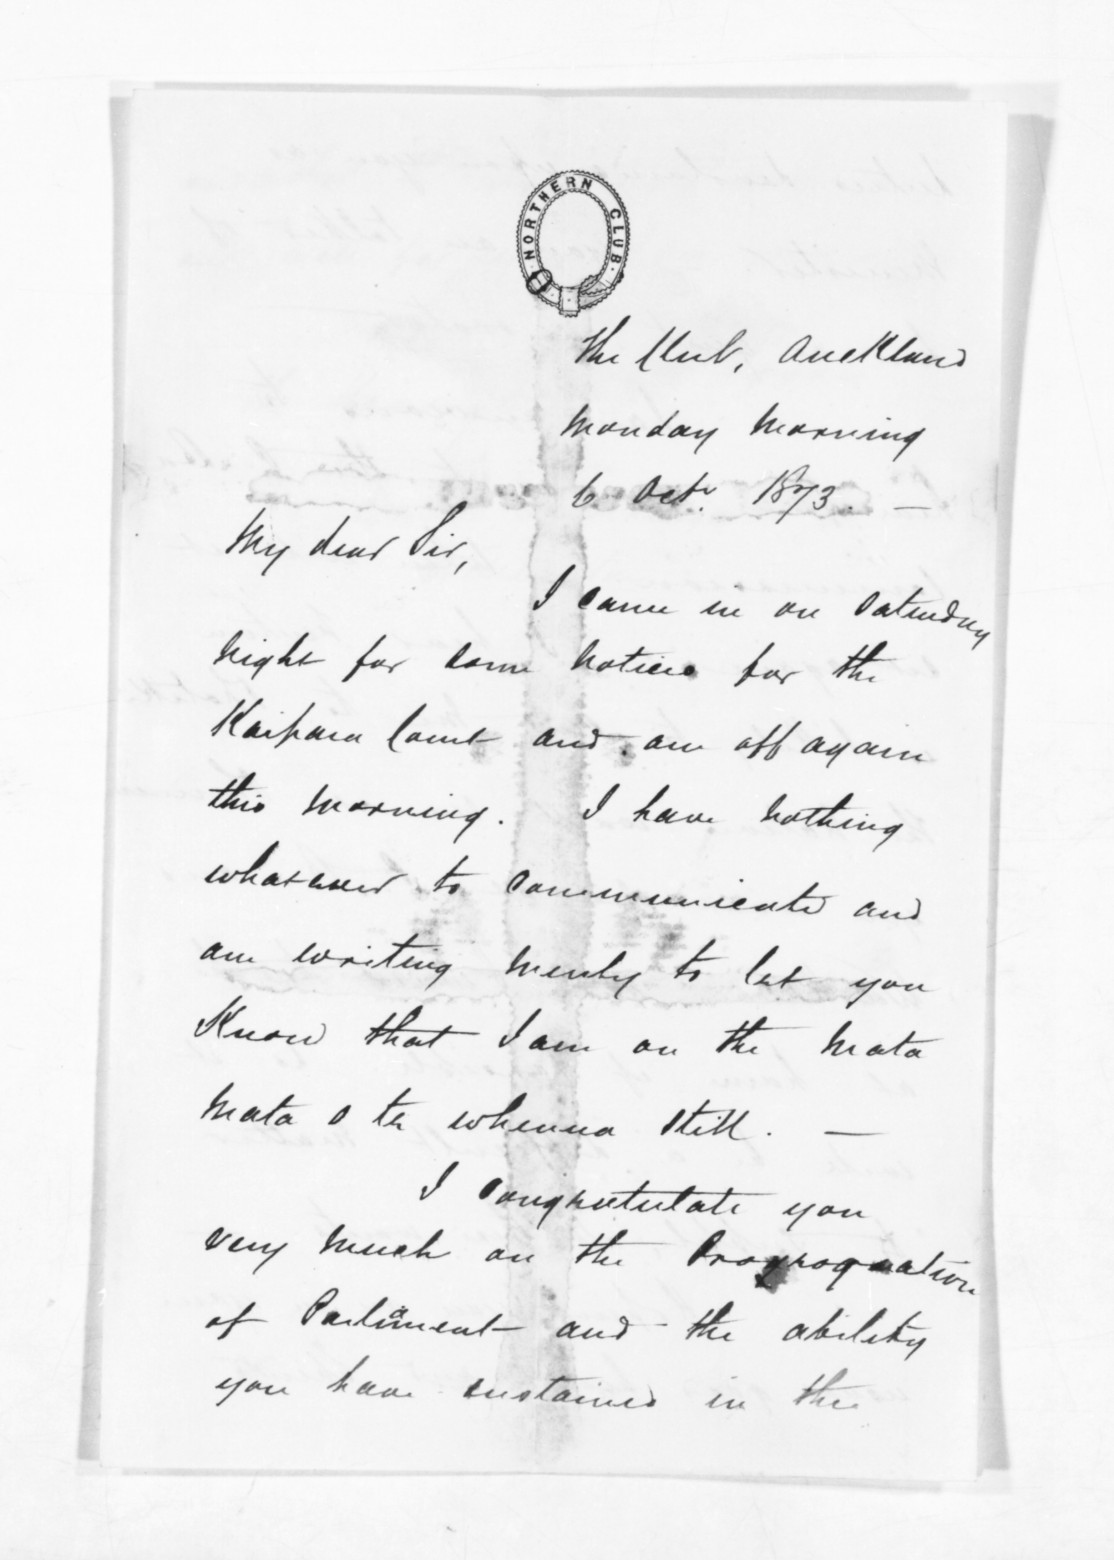 NORTHERN CLUB
The Club, Auckland
Monday Morning
6 Octr. 1873. —
My dear Sir,
I came in on Saturday
night for some notices for the
Kaipara Court and am off again
this morning. I have nothing
whatever to communicate and
am writing merely to let you
know that I am on the mata
mata o te whenua still. —
I congratulate you
very much on the Progrogation
of Parliament and the ability
you have sustained in the